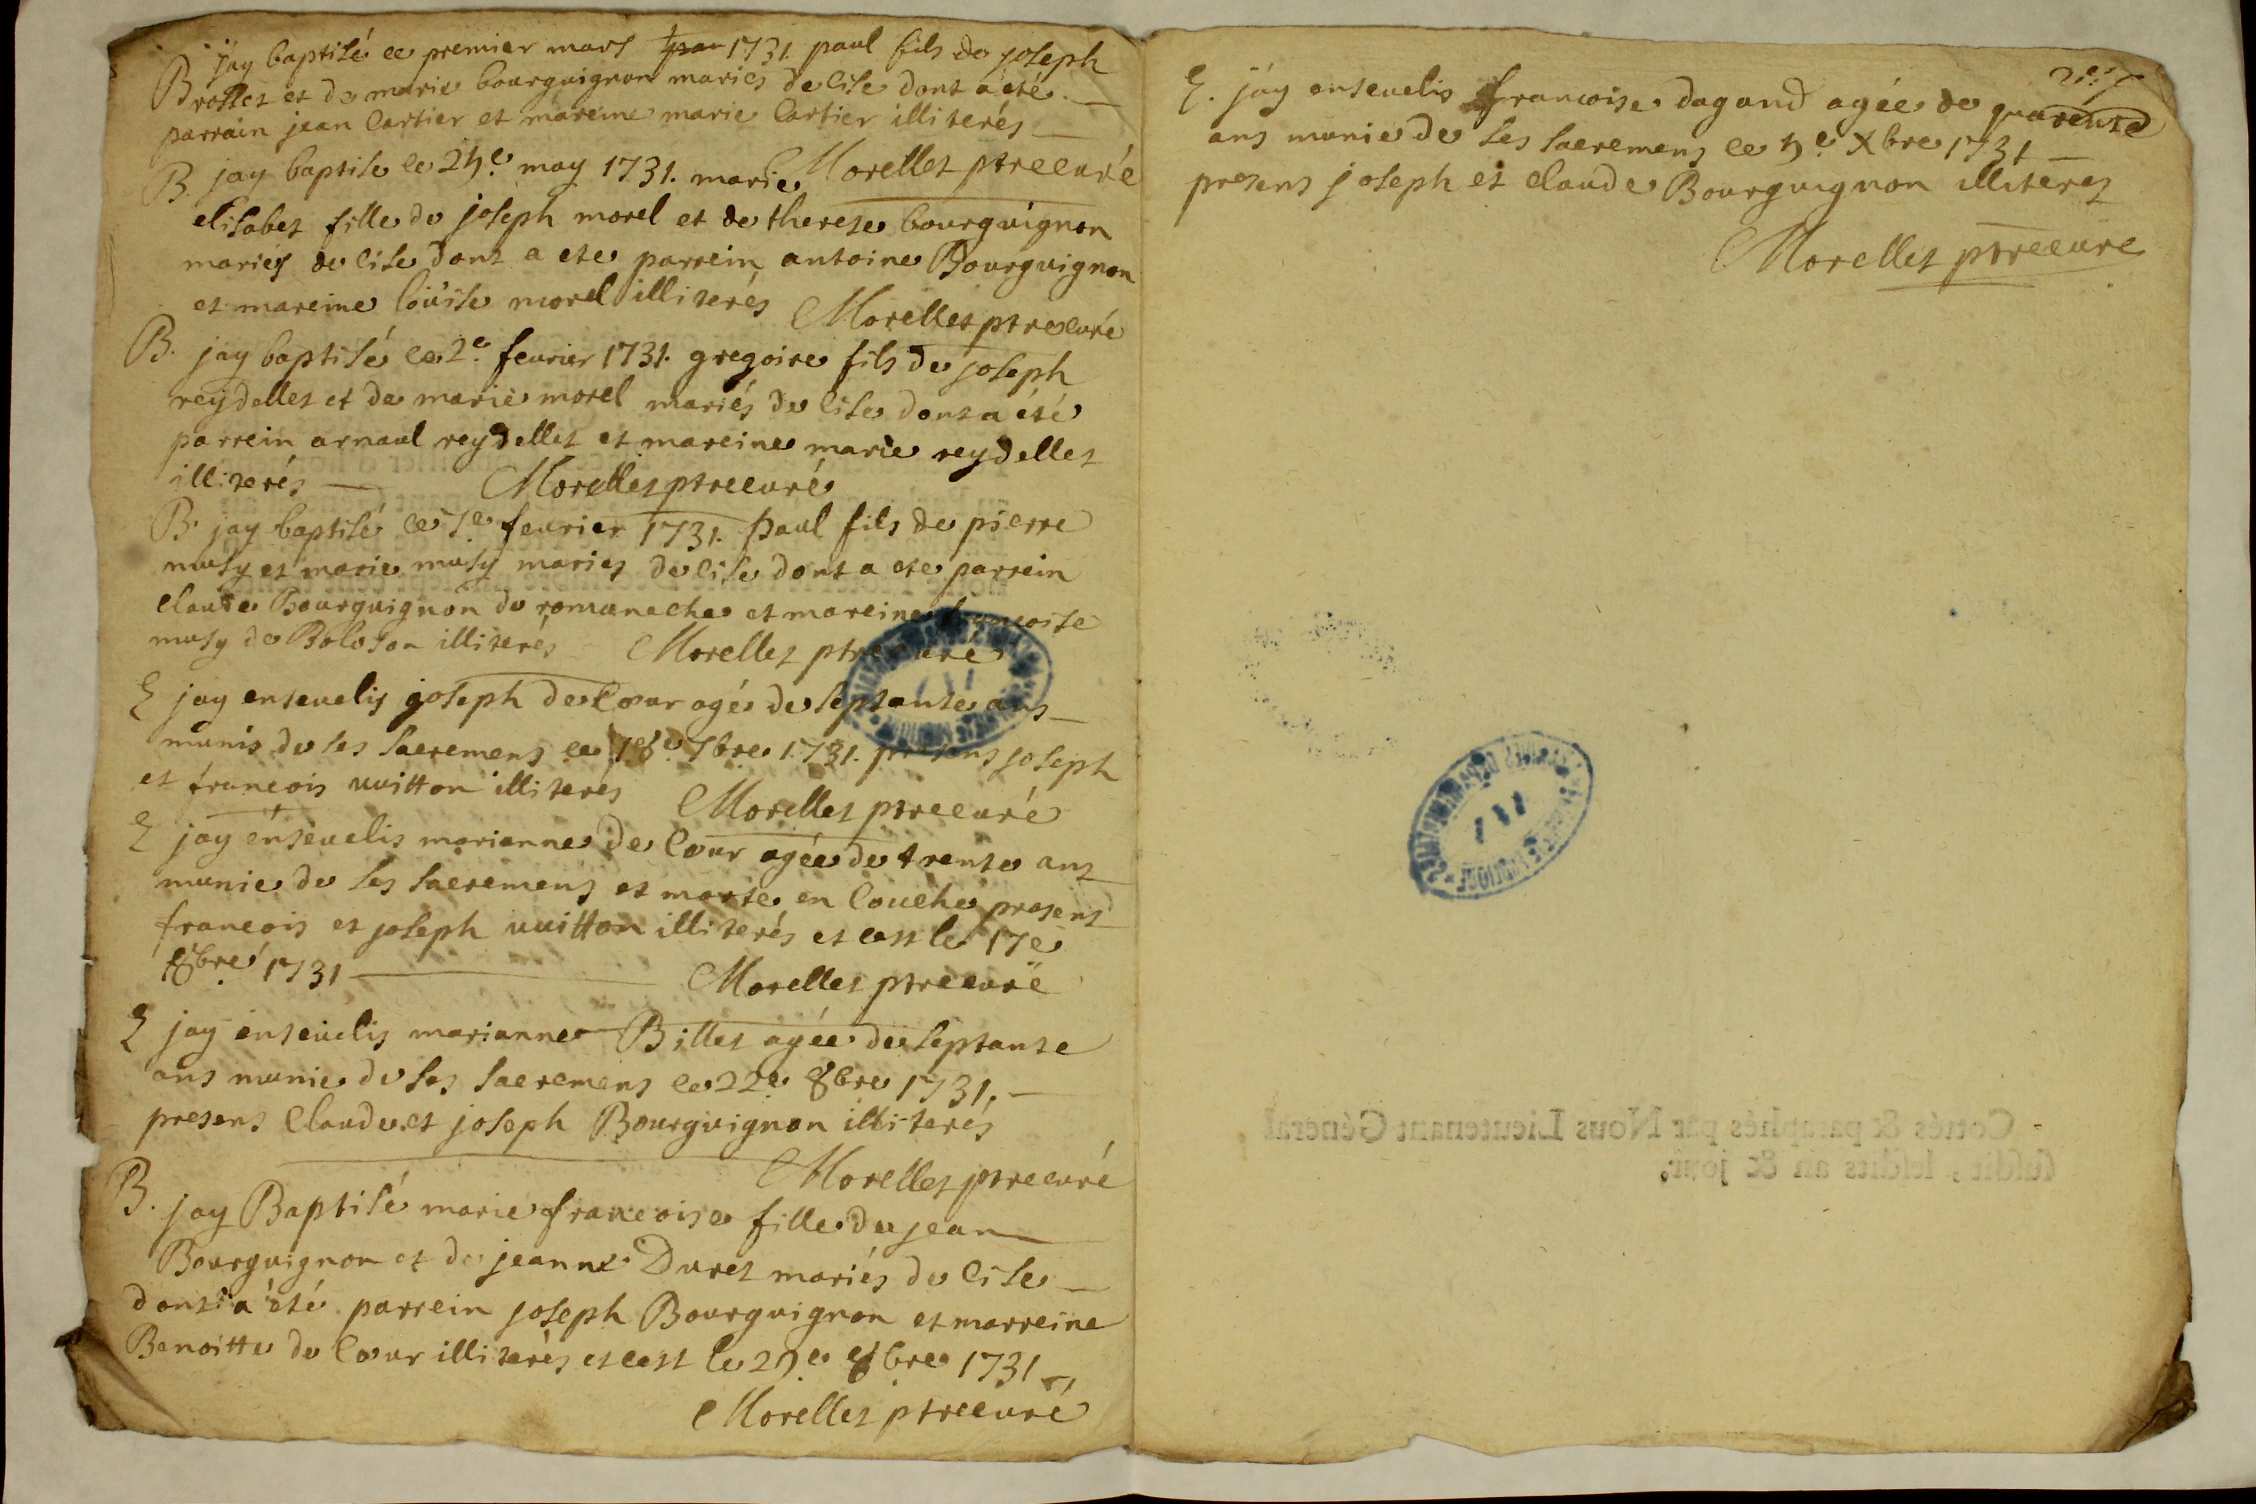 B jay baptisé ce premier mars 1731. paul fils de joseph
Brosset et de marie bourguignon mariés de lise dont a été
parrain jean Cartier et mareine marie Cartier illiterés
B. jay baptise ce 25e may 1731. marie Morellet ptre curé
elisabet fille de joseph morel et de therese bourguignon
mariés de lise dont a ete parrein antoine Bourguignon
et mareine loüise morel illiterés Morellet ptre curé
B. jay baptisé ce 2e fevrier 1731. gregoire fils de joseph
reydellet et de marie morel mariés de lise dont a été
parrein arnaul reydellet et mareine marie reydellet
illiterés Morellet ptre curé
B jay baptisé ce fevrier 1731. paul fils de pierre
musy et marie musy mariez de lise dont a ete parrein
claude Bourguignon de romaneche et mareine francoise
musy de Boloson illiterés Morellet ptre curé
E jay ensevelis joseph de Cour agé de septante ans
munis de ses sacremens ce 18e 7bre 1731. presens joseph
et francois vuitton illiterés Morellet ptre curé
E jay ensevelis marianne de Cour agée de trente ans
munie de ses sacremens et morte en Couche presens
francois et joseph vuitton illiterés et cest le 17e
8bre 1731 Morellet ptre curé
E jay ensevelis marianne Billet agée de septante
ans munie de ses sacremens ce 22e 8bre 1731.
presens Claude et joseph Bourguignon illiterés
Morellet ptre curé
B. jay Baptisé marie francoise fille de jean
Bourguignon et de jeanne Duret mariés de lise
dont a été parrein joseph Bourguignon et marreine
Benoitte de Cour illiterés et cest le 29e 8bre 1731
Morellet ptre curé
E. jay ensevelis francoise dagand agée de quarente
ans munie de ses sacremens ce 5e Xbre 1731
presens joseph et claude Bourguignon illiterez
Morellet ptre curé
Cottés & paraphés par Nous Lieutenant Général
susdit, lesdits an & jour.